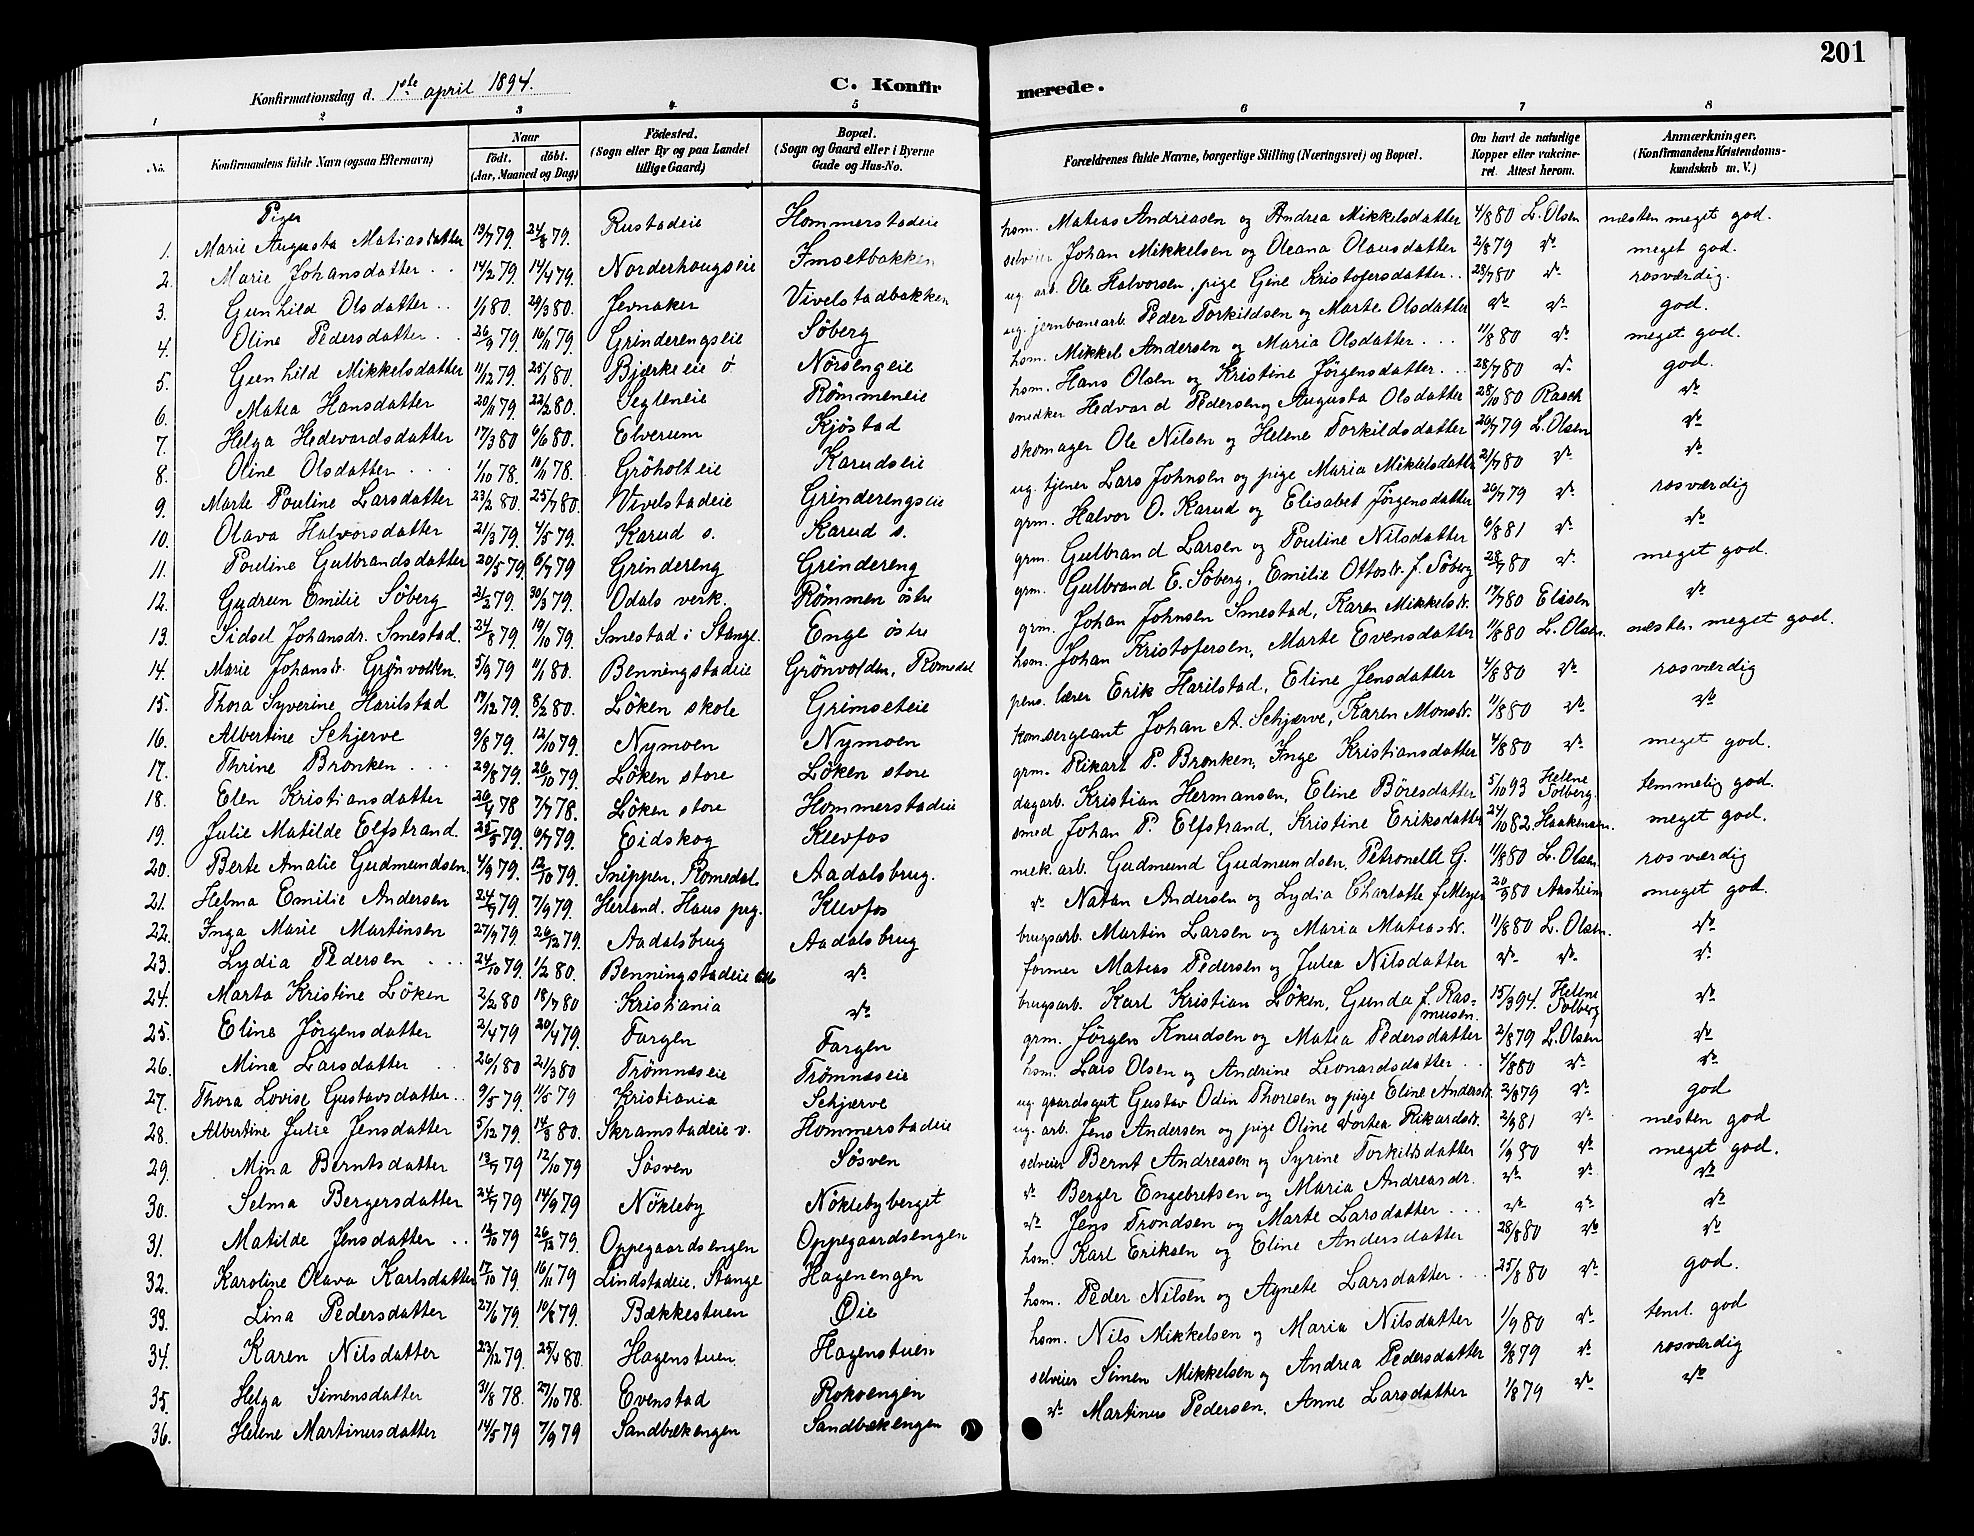 201
Konfirmationsdag d. 1ste april 1894.
C. Konfirmerede.
1 2 3 4 5 6 7 8
No. Konfirmandens fulde Navn (ogsaa Efternavn) Naar født. døbt. (Aar, Maaned og Dag) Fødested. (Sogn eller By og paa Landet tillige Gaard) Bopæl. (Sogn og Gaard eller i Byerne Gade og Hus-No. Forældrenes fulde Navne, borgerlige Stilling (Næringsvei) og Bopæl. Om havt de naturlige Kopper eller vakcineret. Attest herom. Anmærkninger. (Konfirmandens Kristendomskundskab m. V.)
Piger
1. Marie Augusta Matiasdatter 19/7 79. 24/8 79. Rustadeie Hommerstadeie hsm. Mateas Andreasen og Andrea Mikkelsdatter 4/8 80 L. Olsen næsten meget god.
2. Marie Johansdatter 14/2 79. 14/4 79. Norderhougseie Imsetbakken selveier Johan Mikkelsen og Oleana Olausdatter 2/8 79 do meget god.
3. Gunhild Olsdatter 1/1 80. 29/3 80. Jevnaker Vivelstadbakken ug. arb. Ole Halvorsen, pige Gine Kristofersdatter 28/7 80 do rosværdig.
4. Oline Pedersdatter 26/9 79. 16/11 79. Grinderengseie Søberg ug. jernbanearb. Peder Torkildsen og Marte Olsdatter do do god.
5. Gunhild Mikkelsdatter 11/12 79. 25/1 80. Bjerkeeie ø Nørsengeie hsm. Mikkel Andersen og Maria Olsdatter 11/8 80 do meget god.
6. Matea Hansdatter 20/11 79. 22/2 80. Segleneie Rømmeneie hsm. Hans Olsen og Kristine Jørgensdatter 28/7 80 do god.
7. Helga Hedevardsdatter 17/3 80 6/6 80. Elverum Kjøstad snedker Hedvard Pedersen og Augusta Olsdatter 28/10 80 Rasch do
8. Oline Olsdatter 1/10 78. 10/11 78. Grøholteie Karudseie skomager Ole Nilsen og Helene Torkildsdatter 26/7 79 L. Olsen do
9. Marte Pouline Larsdatter 23/2 80. 25/7 80. Vivelstadeie Grinderengseie ug. tjener Lars Johnsen og pige Maria Mikkelsdatter 21/7 80 do do
10. Olava Halvorsdatter 21/3 79. 4/5 79. Karud s. Karud s. grm. Halvor O. Karud og Elisabet Jørgensdatter 26/7 79 do rosværdig
11. Pouline Gulbrandsdatter 20/5 79. 6/7 79 Grindereng Grindereng grm. Gulbrand Larsen og Pouline Nilsdatter 6/8 81 do do
12. Gudrun Emilie Søberg 21/2 79. 30/3 79. Odals verk. Rømmen østre grm. Gulbrand E. Søberg, Emilie Ottosdr. f. Søberg 28/7 80 do meget god.
13. Sidsel Johansdr. Smestad. 24/8 79. 19/10 79. Smestad i Stange. Enge østre grm. Johan Johnsen Smestad, Karen Mikkelsdr. 17/7 80 Elisen do
14. Marie Johansdr. Grønvolden. 5/9 79 11/1 80. Benningstadeie Grønvolden, Romedal hsm. Johan Kristofersen, Marte Evensdatter 11/8 80 L. Olsen. næsten meget god.
15. Thora Syverine Harilstad 19/12 79. 8/2 80. Løken skole Grimseteie pens. lærer Erik Harilstad, Eline Jensdatter 4/8 80 do rosværdig
16. Albertine Schjerve 9/8 79. 12/10 79. Nymoen Nymoen komsergeant Johan A. Schjerve, Karen Monsdr. 11/8 80 do do
17. Thrine Bronken 29/8 79. 26/10 79. Løken store Løken store grm. Rikart P. Bronken, Inge Kristiansdatter 4/8 80 do meget god.
18. Elen Kristiansdatter 26/4 78 7/7 78. Løken store Hommerstadeie dagarb. Kristian Hermansen, Eline Børesdatter 5/10 93 Helene Solberg. temmelig god.
19. Julie Matilde Elfstrand. 25/5 79. 6/7 79. Eidskog Klevfos smed Johan P. Elfstrand, Kristine Eriksdatter 24/10 82. Haakensen. meget god.
20. Berte Amalie Gudmundsen. 4/9 79. 12/10 79. Snippen, Romedal. Aadalsbrug. mek. arb. Gudmund Gudmundsen, Petronelle G. 11/8 80 L. Olsen. rosværdig
21. Helma Emilie Andersen 24/7 79 7/9 79. Herland, Haus prg. Klevfos do Natan Andersen og Lydia Charlotte f. Meyer 20/9 80 Aasheim meget god.
22. Inga Marie Martinsen 27/9 79. 26/12 79. Aadalsbrug Aadalsbrug brugsarb. Martin Larsen og Maria Mateasdr. 11/8 80 L. Olsen. do
23. Lydia Pedersen 24/10 79. 1/2 80. Benningstadeie do former Mateas Pedersen og Julea Nilsdatter do do do
24. Marta Kristine Løken 2/2 80 18/7 80 Kristiania do brugsarb. Karl Kristian Løken, Gunda f. Rasmusen. 15/3 94. Helene Solberg do
25. Eline Jørgensdatter 2/4 79 20/4 79. Fargen Fargen grm. Jørgen Knudsen og Matea Pedersdatter 2/8 79 L. Olsen do
26. Mina Larsdatter 26/1 80 21/3 80 Trømnæseie Trømnæseie hsm. Lars Olsen og Andrine Leonardsdatter 4/8 80 do do
27. Thora Lovise Gustavsdatter 9/5 79. 11/5 79 Kristiania Schjerve ug. gaardsgut Gustav Odin Thoresen og pige Eline Andersdr. 2/8 79 do god
28. Albertine Julie Jensdatter 5/12 79. 14/3 80. Skramstadeie v. Hommerstadeie ug. arb. Jens Andersen og pige Oline Dortea Rikardsdr. 2/9 81 do næsten god
29. Mina Berntsdatter 13/7 79 12/10 79 Søsven Søsven selveier Bernt Andreasen og Syrine Torkildsdatter 1/9 80 do meget god.
30. Selma Bergersdatter 24/7 79 14/9 79 Nøkleby Nøklebyberget do Berger Engebretsen og Maria Andreasdr. do do do
31. Matilde Jensdatter 12/10 79 26/12 79. Oppegaardsengen Oppegaardsengen do Jens Trondsen og Marte Larsdatter do do do
32. Karoline Olava Karlsdatter 17/10 79. 16/11 79 Lindstadeie, Stange Hagenengen hsm. Karl Eriksen og Eline Andersdatter 28/8 80 do do
33. Lina Pedersdatter 27/6 79. 10/8 79. Bækkestuen Øie hsm. Peder Nilsen og Agnete Larsdatter 25/8 80 do god.
34. Karen Nilsdatter 23/12 79. 25/4 80. Hagenstuen Hagenstuen hsm. Nils Mikkelsen og Maria Nilsdatter 1/9 80 do teml. god
35. Helga Simensdatter 31/8 78. 27/10 78. Evenstad Rokoengen selveier Simen Mikkelsen og Andrea Pedersdatter 9/8 79 do rosværdig
36. Helene Martinusdatter 14/5 79 7/9 79 Sandbækengen Sandbækengen do Martinus Pedersen, Anne Larsdatter 1/8 79 do do